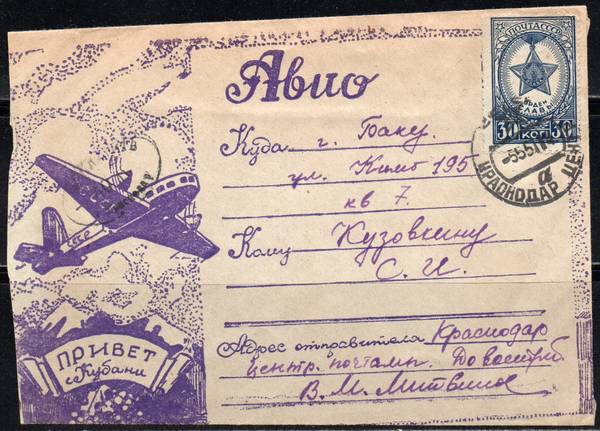 Авио
ПОЧТА СССР
ОРДЕН
СЛАВЫ
30 КОП 30
КРАСНОДАР ЦЕН
-5551
а
Куда г. Баку
ул. Кимб 195
кв 7.
Кому Кузовкину
С. И.
Адрес отправителя Краснодар
Центр. почтамп. До востреб.
В. М.
ПРИВЕТ
с Кубани
СССР